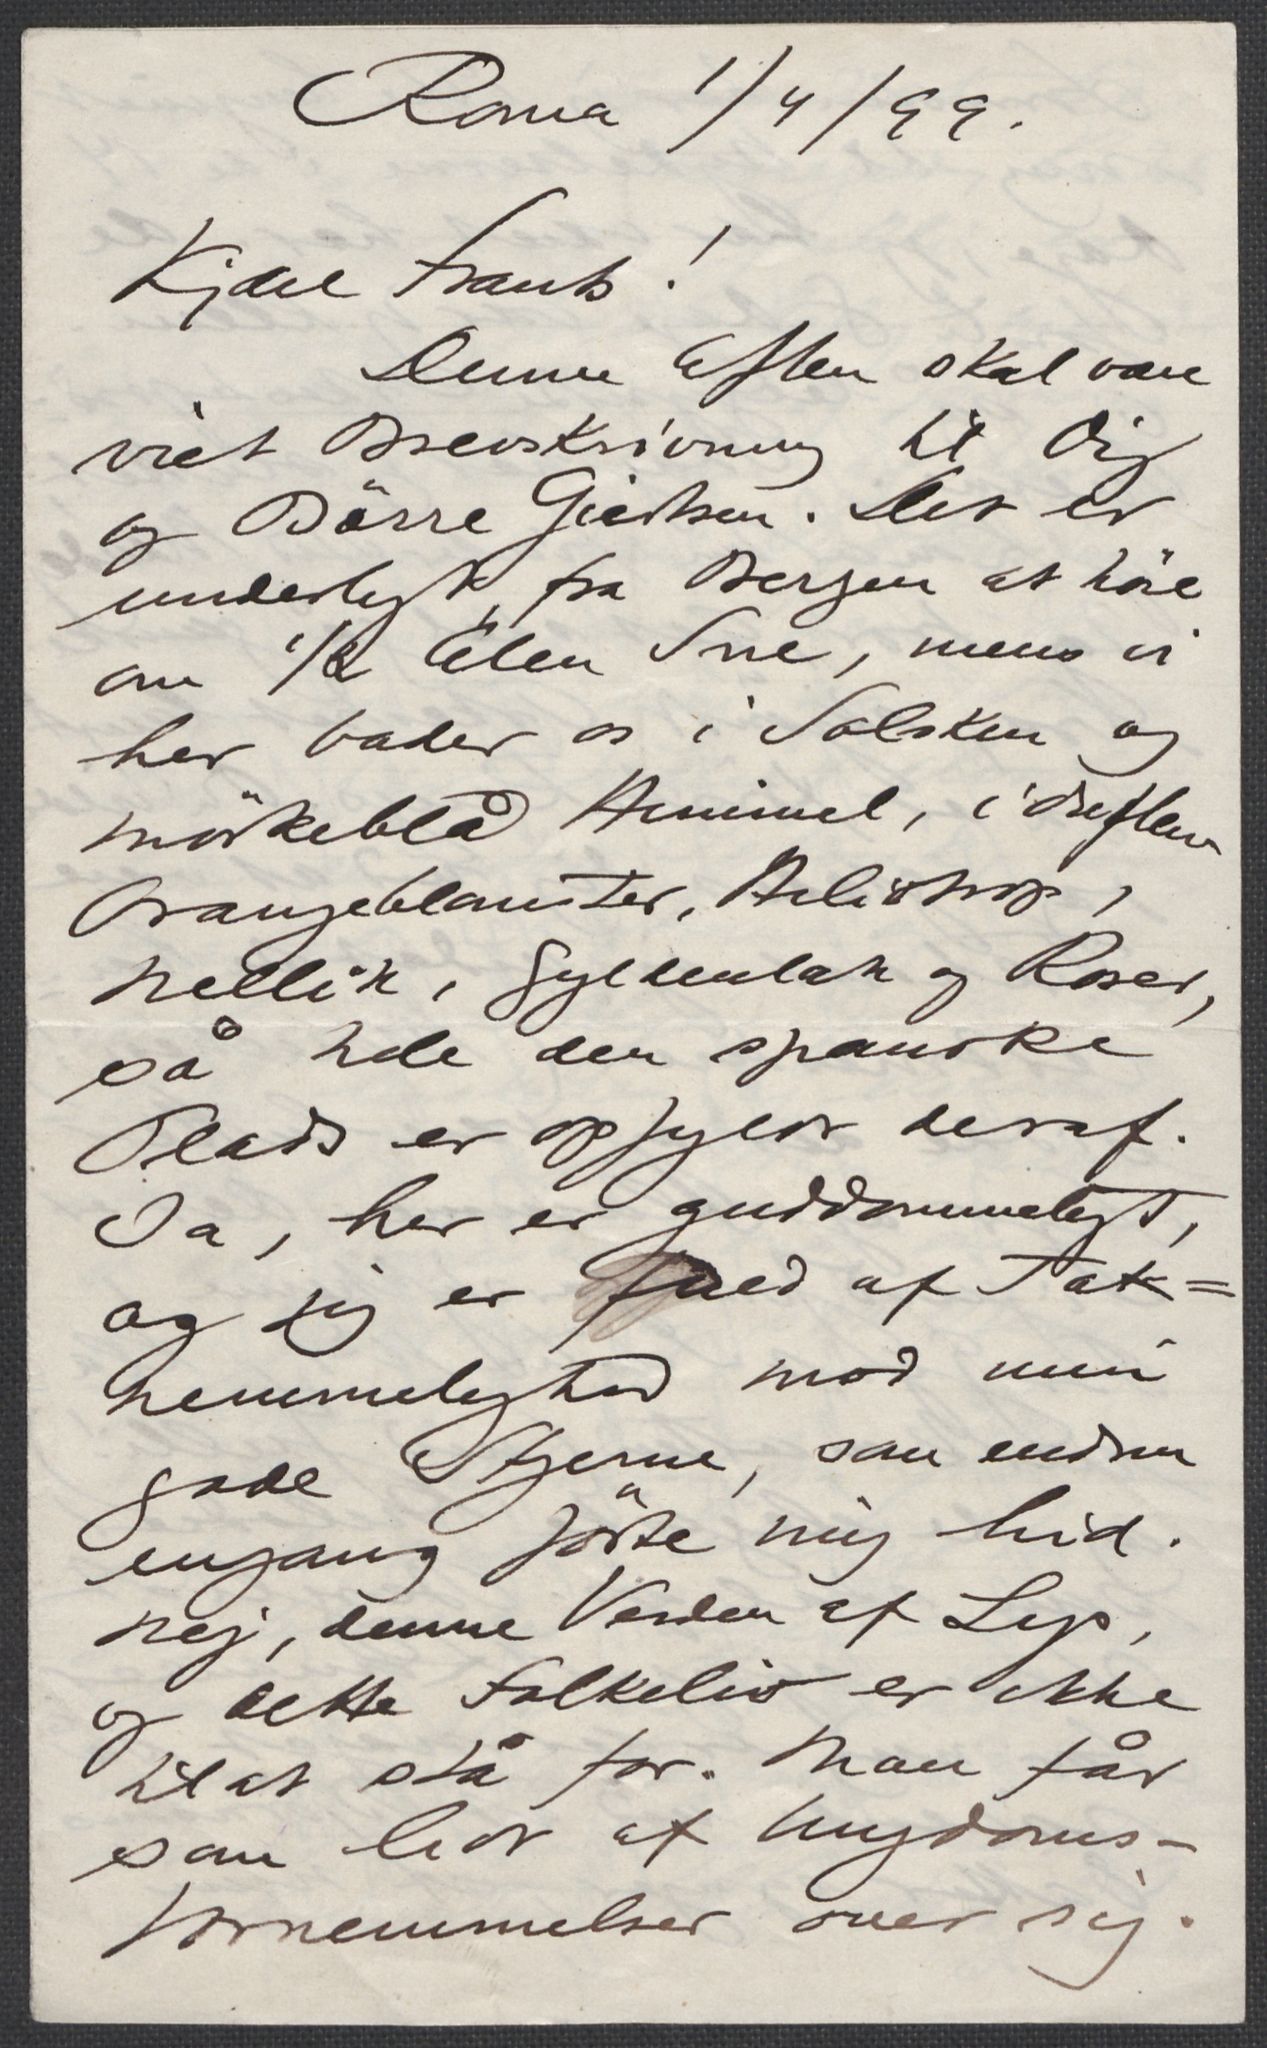 Roma 1/4/99.
Kjære Frants!
Denne Aften skal være
viet Brevskrivning til Dig
og Börre Giertsen. Det er
underligt, fra Bergen at höre
om 1/2 Alen Sne, mens vi
her bader os i Solsken og
mörkeblå Himmel, i Duften
Orangeblomster, Heliotrop,
Nellik, Gyldenlak og Roser,
så hele den spanske
Plads er opfyldt deraf.
Ja, her er guddommeligt,
og jeg er fuld af Tak=
nemmelighed mod min
gode Stjerne, som endnu
engang förte mig hid.
Nej, denne Verden af Lys,
og dette Folkeliv er ikke
til at stå for. Man får
som lidt af Ungdoms-
fornemmelser over sig.